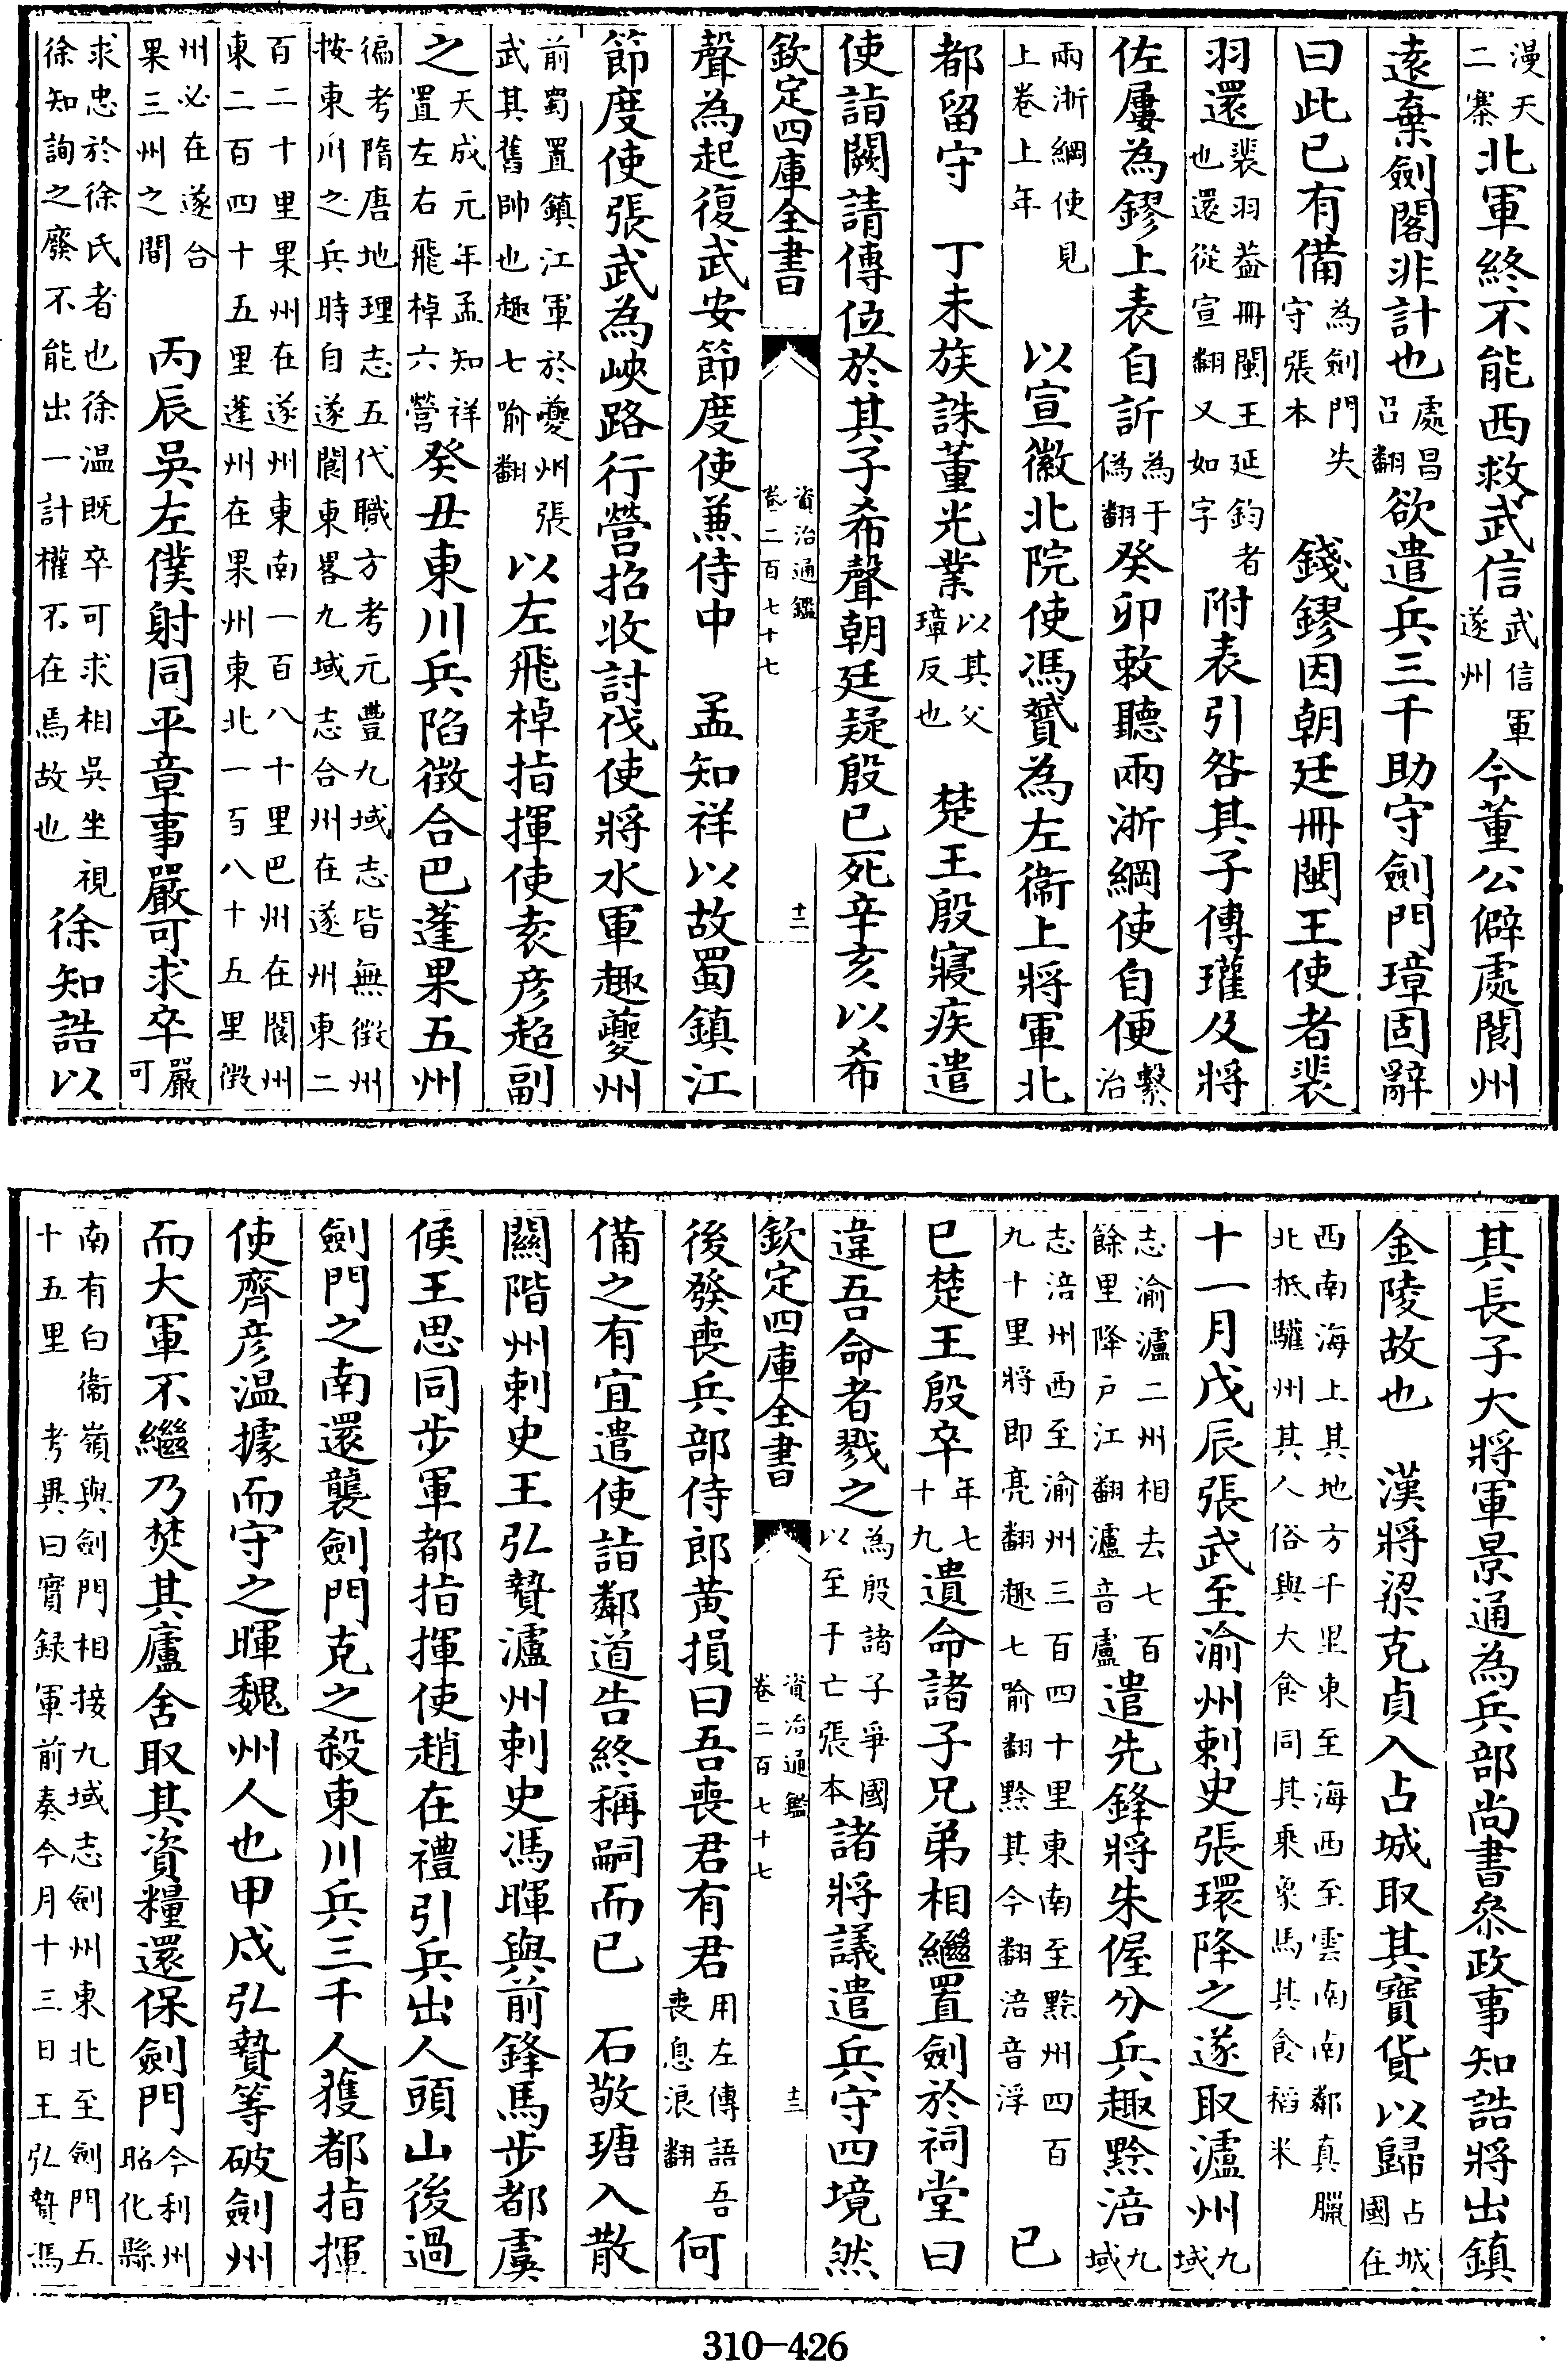 漫天二寨北軍終不能西救武信武信軍遂州今董公僻處閬州
遠棄劍閣非計也處昌吕翻欲遣兵三千助守劍門璋固辭
曰此已有備為劍門失守張本　錢鏐因朝廷冊閩王使者裴
羽還裴羽葢冊閩王延鈞者也還從宣翻又如字附表引咎其子傳瓘及將
佐屢為鏐上表自訢為于偽翻癸卯敕聽兩浙綱使自便繫治
兩浙綱使見上卷上年　以宣徽北院使馮贇為左衞上將軍北
都留守　丁未族誅董光業以其父璋反也　楚王殷寢疾遣
使詣闕請傳位於其子希聲朝廷疑殷已死辛亥以希
欽定四庫全書　資治通鑑卷二百七十七　十二
聲為起復武安節度使兼侍中　孟知祥以故蜀鎮江
節度使張武為峽路行營招收討伐使將水軍趣夔州
前蜀置鎮江軍於夔州張武其舊帥也趣七喻翻　以左飛棹指揮使袁彦超副
之天成元年孟知祥置左右飛棹六營癸丑東川兵陷徵合巴蓬果五州
徧考隋唐地理志五代職方考元豐九域志皆無徵州
按東川之兵時自遂閬東畧九域志合州在遂州東二
百二十里果州在遂州東南一百八十里巴州在閬州
東二百四十五里蓬州在果州東北一百八十五里徵
州必在遂合果三州之間　丙辰吳左僕射同平章事嚴可求卒嚴可
求忠於徐氏者也徐温既卒可求相吳坐視徐知詢之廢不能出一計權不在焉故也徐知誥以
其長子大將軍景通為兵部尚書參政事知誥將出鎮
金陵故也　漢將梁克貞入占城取其寶貨以歸占城國在
西南海上其地方千里東至海西至雲南南鄰真臘
北抵驩州其人俗與大食同其乘象馬其食稻米
十一月戊辰張武至渝州刺史張環降之遂取瀘州九域
志渝瀘二州相去七百餘里降戶江翻瀘音盧遣先鋒將朱偓分兵趣黔涪九域
志涪州西至渝州三百四十里東南至黔州四百九十里將即亮翻趣七喻翻黔其今翻涪音浮　已
巳楚王殷卒年七十九遺命諸子兄弟相繼置劍於祠堂曰
違吾命者戮之為殷諸子爭國以至于亡張本諸將議遣兵守四境然
欽定四庫全書　資治通鑑卷二百七十七　十三
後發喪兵部侍郎黄損曰吾喪君有君用左傳語吾喪息浪翻何
備之有宜遣使詣鄰道告終稱嗣而已　石敬瑭入散
關階州刺史王弘贄瀘州刺史馮暉與前鋒馬步都虞
候王思同步軍都指揮使趙在禮引兵出人頭山後過
劍門之南還襲劍門克之殺東川兵三千人獲都指揮
使齊彦温據而守之暉魏州人也甲戌弘贄等破劍州
而大軍不繼乃焚其廬舍取其資糧還保劍門今利州昭化縣
南有白衞嶺與劍門相接九域志劍州東北至劍門五
十五里　考異曰實録軍前奏今月十三日王弘贄馮
310—426